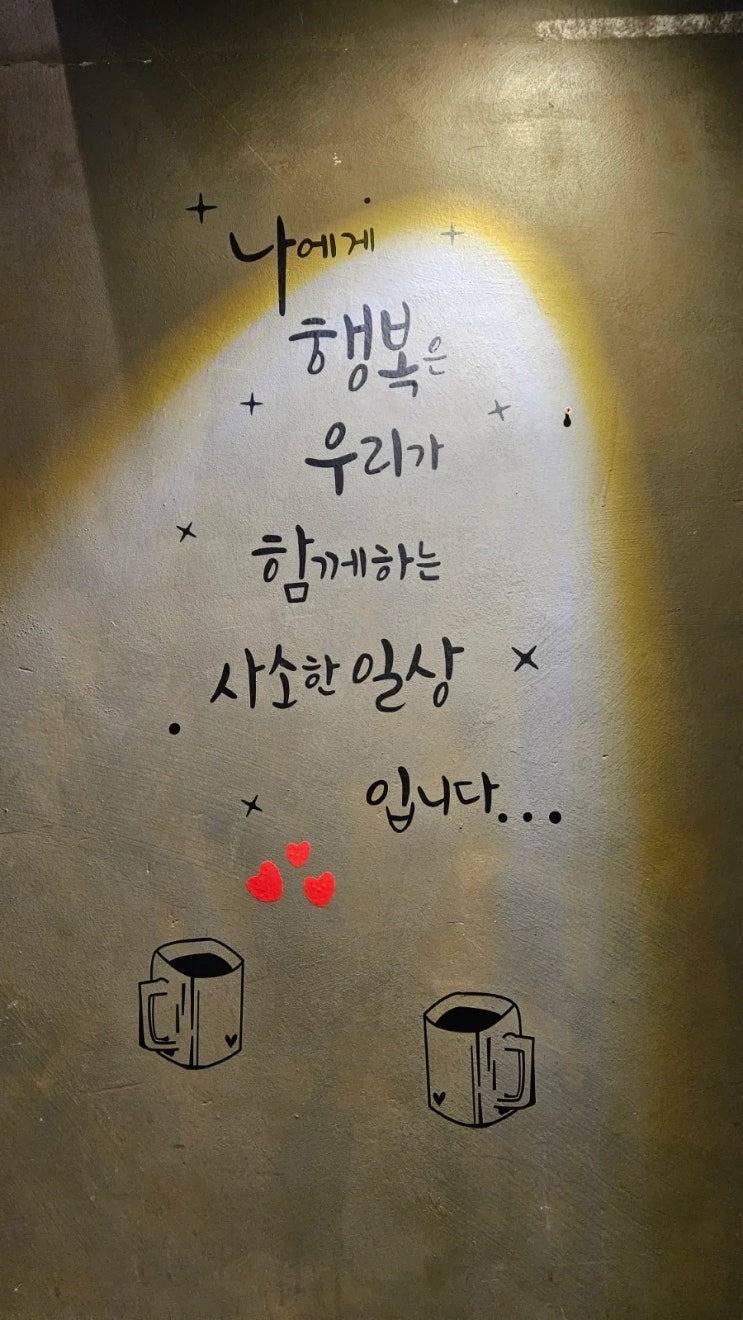 나에게
행복은
우리가
함께하는
사소한 일상
입니다...